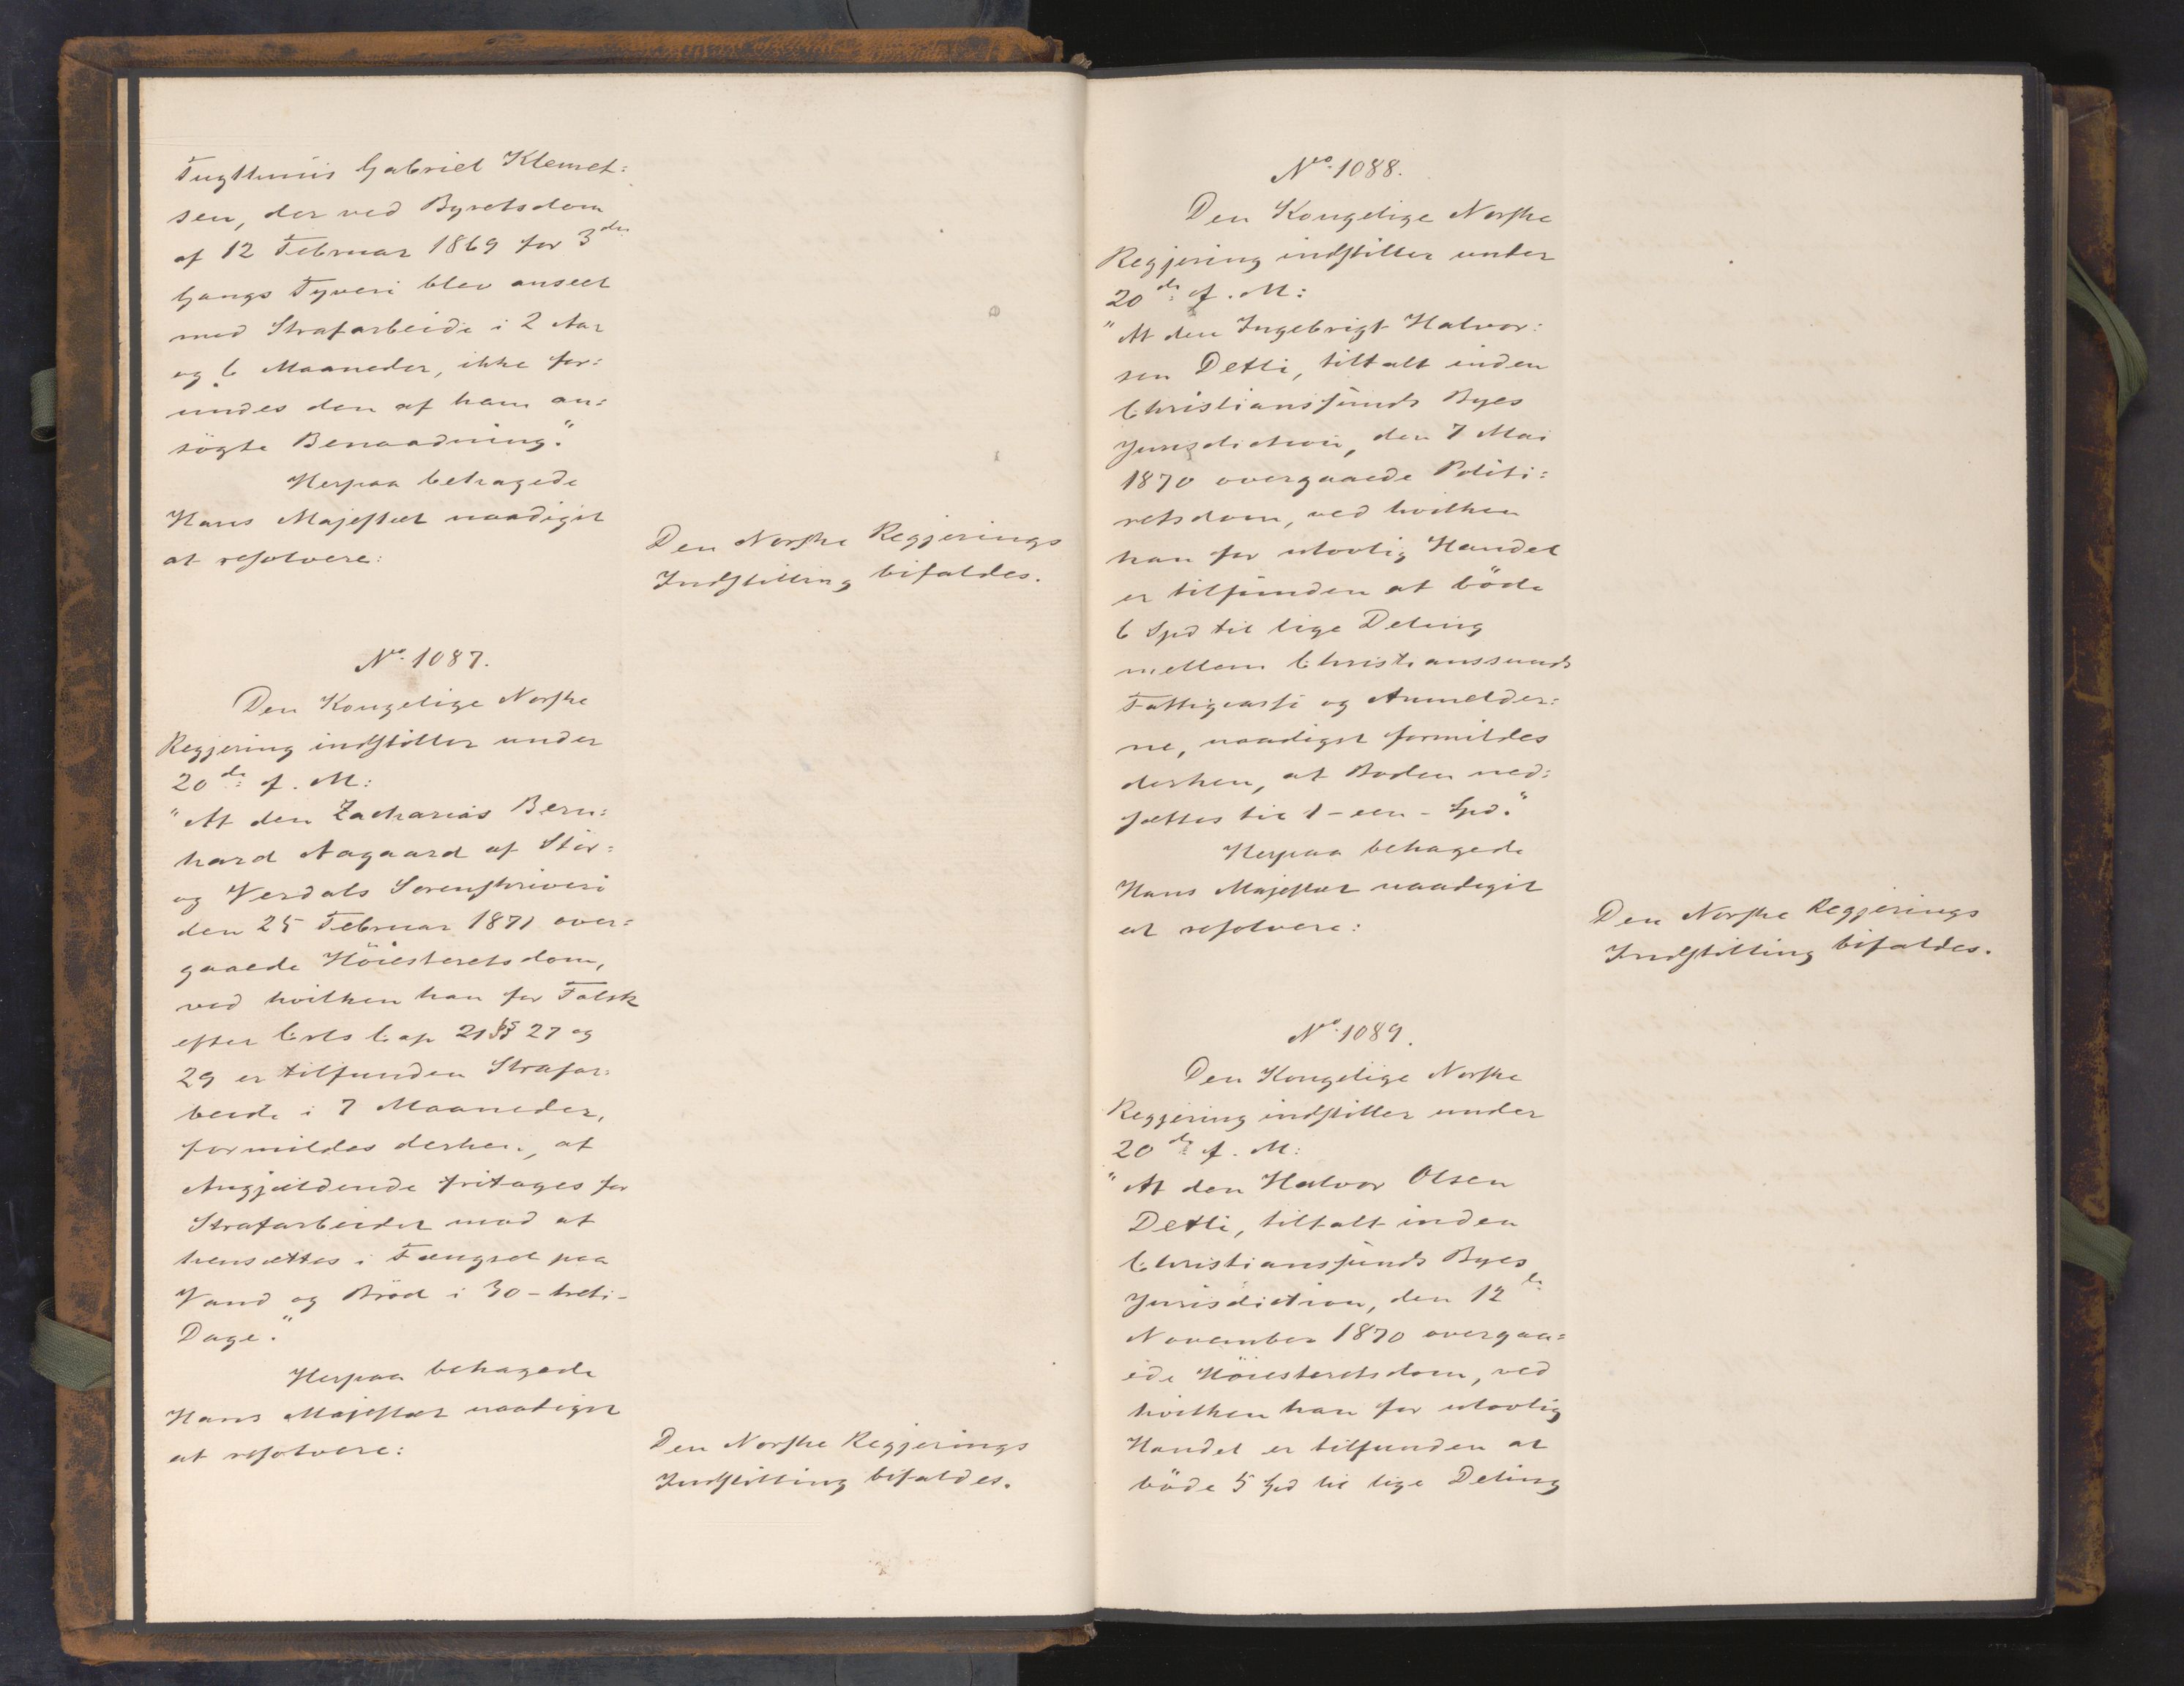 Tugthuus Gabriel Klemet=
sen, der ved Byretsdom
af 12 Februar 1869 for 3die
Gangs Tyveri blev anseet
med Strafarbeide i 2 Aar
og 6 Maaneder, ikke for=
undes den af ham an=
søgte Benaadning."
Herpaa behagede
Hans Majestæt naadigst
at resolvere:
Den Norske Regjerings
Indstilling bifaldes.
No. 1087.
Den Kongelige Norske
Regjering indstiller under
20de f. M:
"At den Zacharias Bern=
hard Aagaard af Stör=
og Verdals Sorenskriveri
den 25 Februar 1871 over=
gaaede Höiesteretsdom,
ved hvilken han for Falsk
efter Crls Cap 21 §§ 27 og
29 er tilfunden Strafar=
beide i 7 Maaneder,
formildes derhen, at
Angjældende fritages for
Strafarbeidet mod at
hensættes i Fængsel paa
Vand og Bröd i 30 - treti -
Dage."
Herpaa behagede
Hans Majestæt naadigst
at resolvere:
Den Norske Regjerings
Indstilling bifaldes.
No. 1088.
Den Kongelige Norske
Regjering indstiller under
20de f. M:
"At den Ingebrigt Halvor=
sen Detli, tiltalt inden
Christianssunds Byes
Jurisdiction, den 7 Mai
1870 overgaaede Politi=
retsdom, ved hvilken
han for ulovlig Handel
er tilfunden at böde
6 Spd til lige Deling
mellem Christianssunds
Fattigcasse og Anmelder=
ne, naadigst formildes
derhen, at Boden ned=
sættes til 1 - een - Spd."
Herpaa behagede
Hans Majestæt naadigst
at resolvere:
Den Norske Regjerings
Indstilling bifaldes.
No. 1089.
Den Kongelige Norske
Regjering indstiller under
20de f. M:
"At den Halvor Olsen
Detli, tiltalt inden
Christianssunds Byes
Jurisdiction, den 12te
November 1870 overgaa=
ede Höiesteretsdom, ved
hvilken han for ulovlig
Handel er tilfunden at
böde 5 Spd til lige Deling